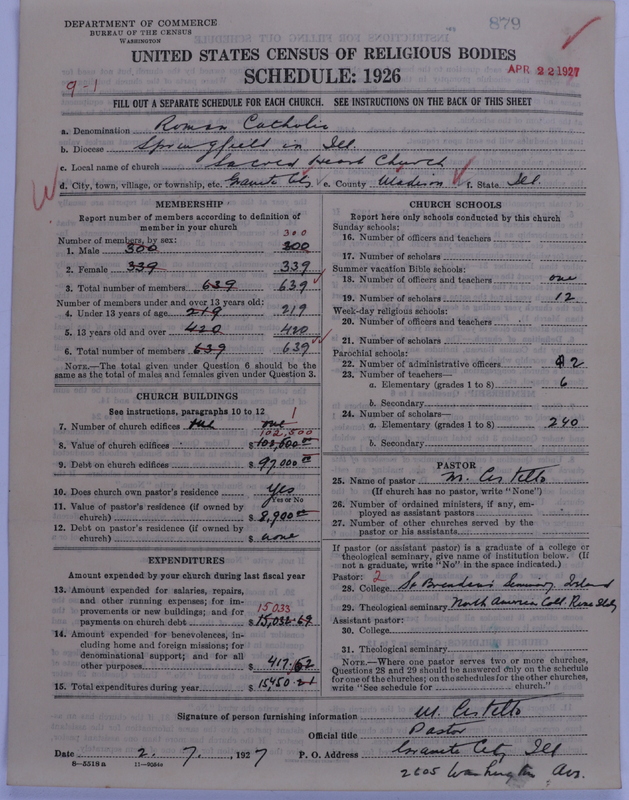 DEPARTMENT OF COMMERCE
BUREAU OF THE CENSUS
WASHINGTON
879
UNITED STATES CENSUS OF RELIGIOUS BODIES
SCHEDULE: 1926
APR 22 1927
9-1
FILL OUT A SEPARATE SCHEDULE FOR EACH CHURCH. SEE INSTRUCTIONS ON THE BACK OF THIS SHEET
a. Denomination Roman Catholic
b. Diocese Springfield in Ill.
c. Local name of church Sacred Heart Church
d. City, town, village, or township, etc. Granite City e. County Madison f. State Ill.
MEMBERSHIP
Report number of members according to definition of member in your church
300
Number of members, by sex:
1. Male 300 300
2. Female 339 339
3. Total number of members 639 639
Number of members under and over 13 years old:
4. Under 13 years of age 219 219
5. 13 years old and over 420 420
6. Total number of members 639 639
NOTE.—The total given under Question 6 should be the same as the total of males and females given under Question 3.
CHURCH BUILDINGS
See instructions, paragraphs 10 to 12
1
7. Number of church edifices one one
102,500
8. Value of church edifices $
9. Debt on church edifices $ 97,000 00
10. Does church own pastor's residence yes
Yes or No
11. Value of pastor's residence (if owned by church) $ 8,900 00
12. Debt on pastor's residence (if owned by church) $ none
EXPENDITURES
Amount expended by your church during last fiscal year
13. Amount expended for salaries, repairs, and other running expenses; for improvements or new buildings; and for payments on church debt $ 15,032.69
15033
14. Amount expended for benevolences, including home and foreign missions; for denominational support; and for all other purposes $ 417.62
15. Total expenditures during year $ 15450.21
CHURCH SCHOOLS
Report here only schools conducted by this church
Sunday schools:
16. Number of officers and teachers
17. Number of scholars
Summer vacation Bible schools:
18. Number of officers and teachers one
19. Number of scholars 12
Week-day religious schools:
20. Number of officers and teachers
21. Number of scholars
Parochial schools:
22. Number of administrative officers 2
23. Number of teachers—
a. Elementary (grades 1 to 8) 6
b. Secondary
24. Number of scholars—
a. Elementary (grades 1 to 8) 240
b. Secondary
PASTOR
25. Name of pastor M. Costello
(If church has no pastor, write "None")
26. Number of ordained ministers, if any, employed as assistant pastors
27. Number of other churches served by the pastor or his assistants
If pastor (or assistant pastor) is a graduate of a college or theological seminary, give name of institution below. (If not a graduate, write "No" in the space indicated.)
Pastor: 2
28. College St Brendan's Seminary Ireland
29. Theological seminary North American Coll. Rome Italy
Assistant pastor:
30. College
31. Theological seminary
NOTE.—Where one pastor serves two or more churches, Questions 28 and 29 should be answered only on the schedule for one of the churches; on the schedules for the other churches, write "See schedule for church."
Signature of person furnishing information M. Costello
Official title Pastor
Date 2. 7. , 1927 P. O. Address Granite City Ill
8-5518a 11-90844
2605 Washington Ave.